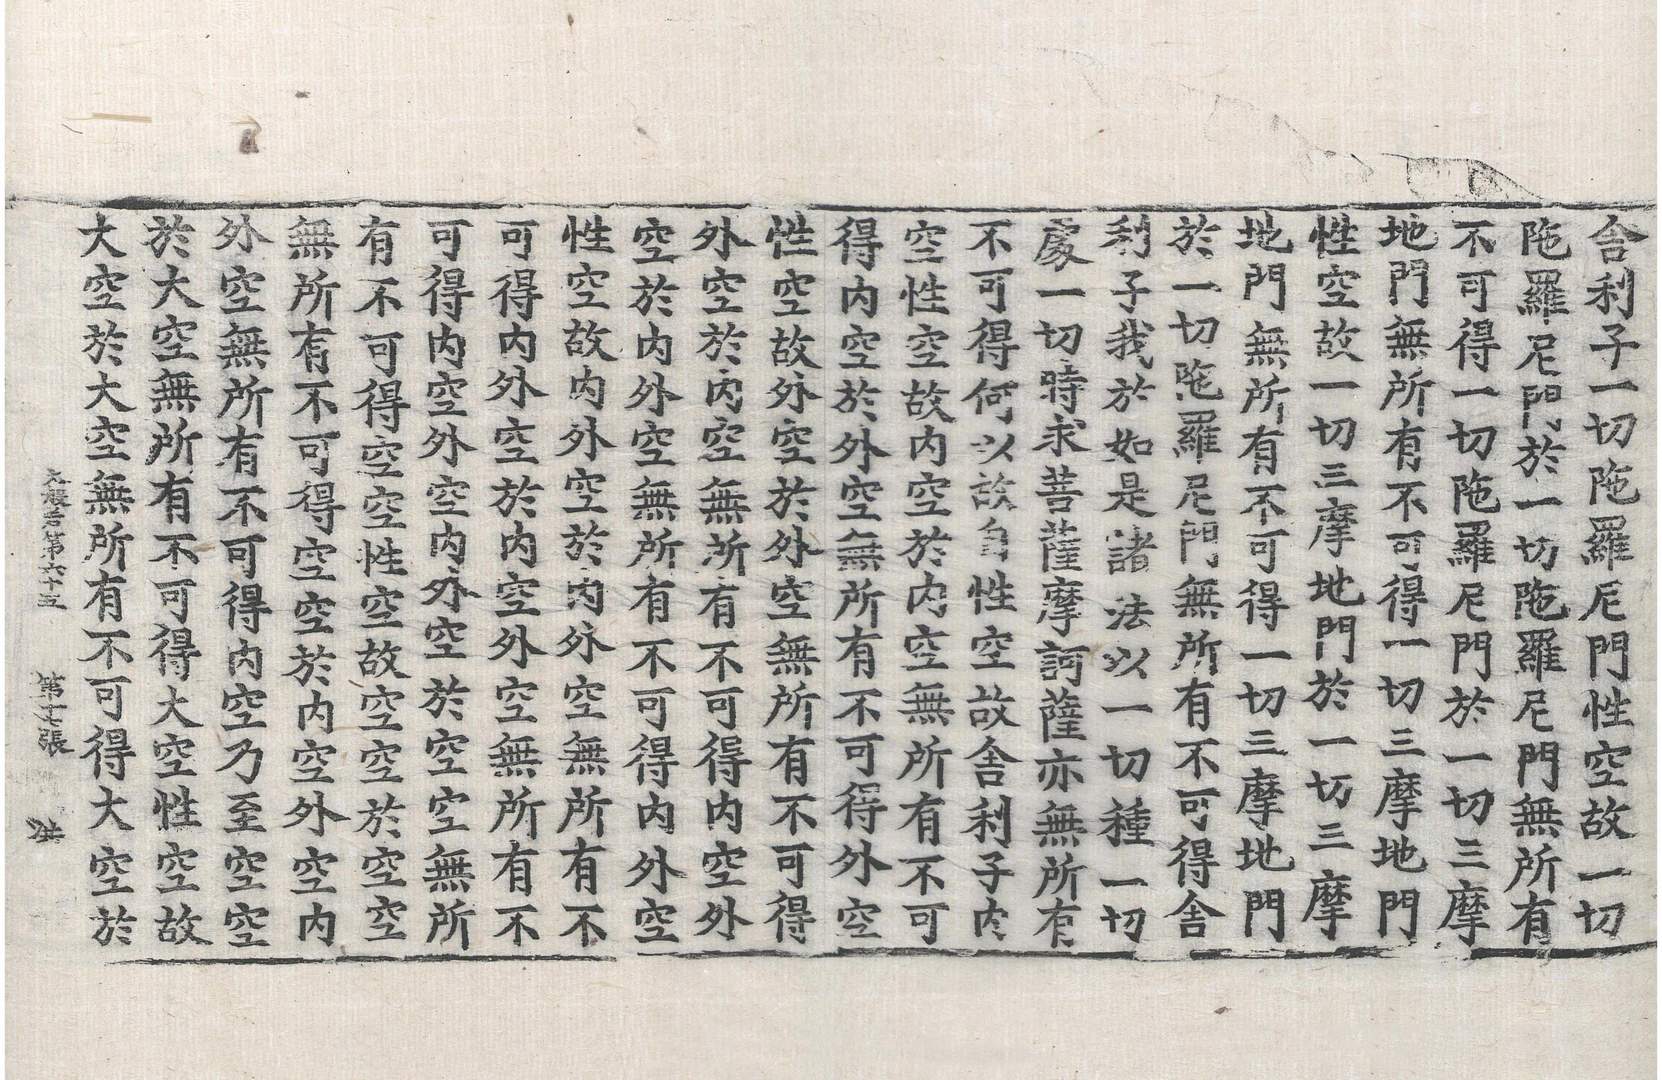 舍利子一切陁羅尼門性空故一切
陁羅尼門於一切陁羅尼門無所有
不可得一切陁羅尼門於一切三摩
地門無所有不可得一切三摩地門
性空故一切三摩地門於一切三摩
地門無所有不可得一切三摩地門
於一切陁羅尼門無所有不可得舍
利子我於如是諸法以一切種一切
處一切時求菩薩摩訶薩亦無所有
不可得何以故自性空故舍利子内
空性空故内空於内空無所有不可
得内空於外空無所有不可得外空
性空故外空於外空無所有不可得
外空於内空無所有不可得内空外
空於内外空無所有不可得内外空
性空故内外空於内外空無所有不
可得内外空於内空外空無所有不
可得内空外空内外空於空空無所
有不可得空空性空故空空於空空
無所有不可得空空於内空外空内
外空無所有不可得内空乃至空空
於大空無所有不可得大空性空故
大空於大空無所有不可得大空於
大般若第六十五 第十七張 洪